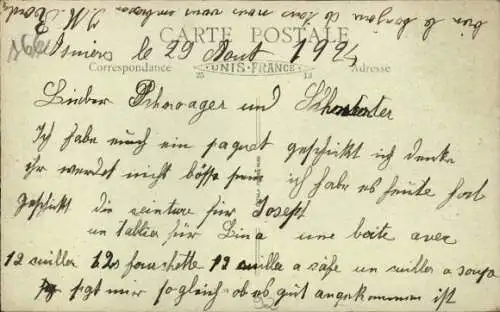 CARTE POSTALE
le 29 Aout 1924
Correspondance UNIS-FRANCE Adresse
Lieber Schwager und
Ich habe euch ein paquet geschikt ich denke
ihr werdet nicht bösse sein ich habe es heute fort
geschikt die ceinture für Josepf
un tablier für Lina une boite avec
12 cuiller 12 fourchette 12 cuiller a cáfe un cuiller a soupe
sagt mir sogleich ob es gut angekommen ist